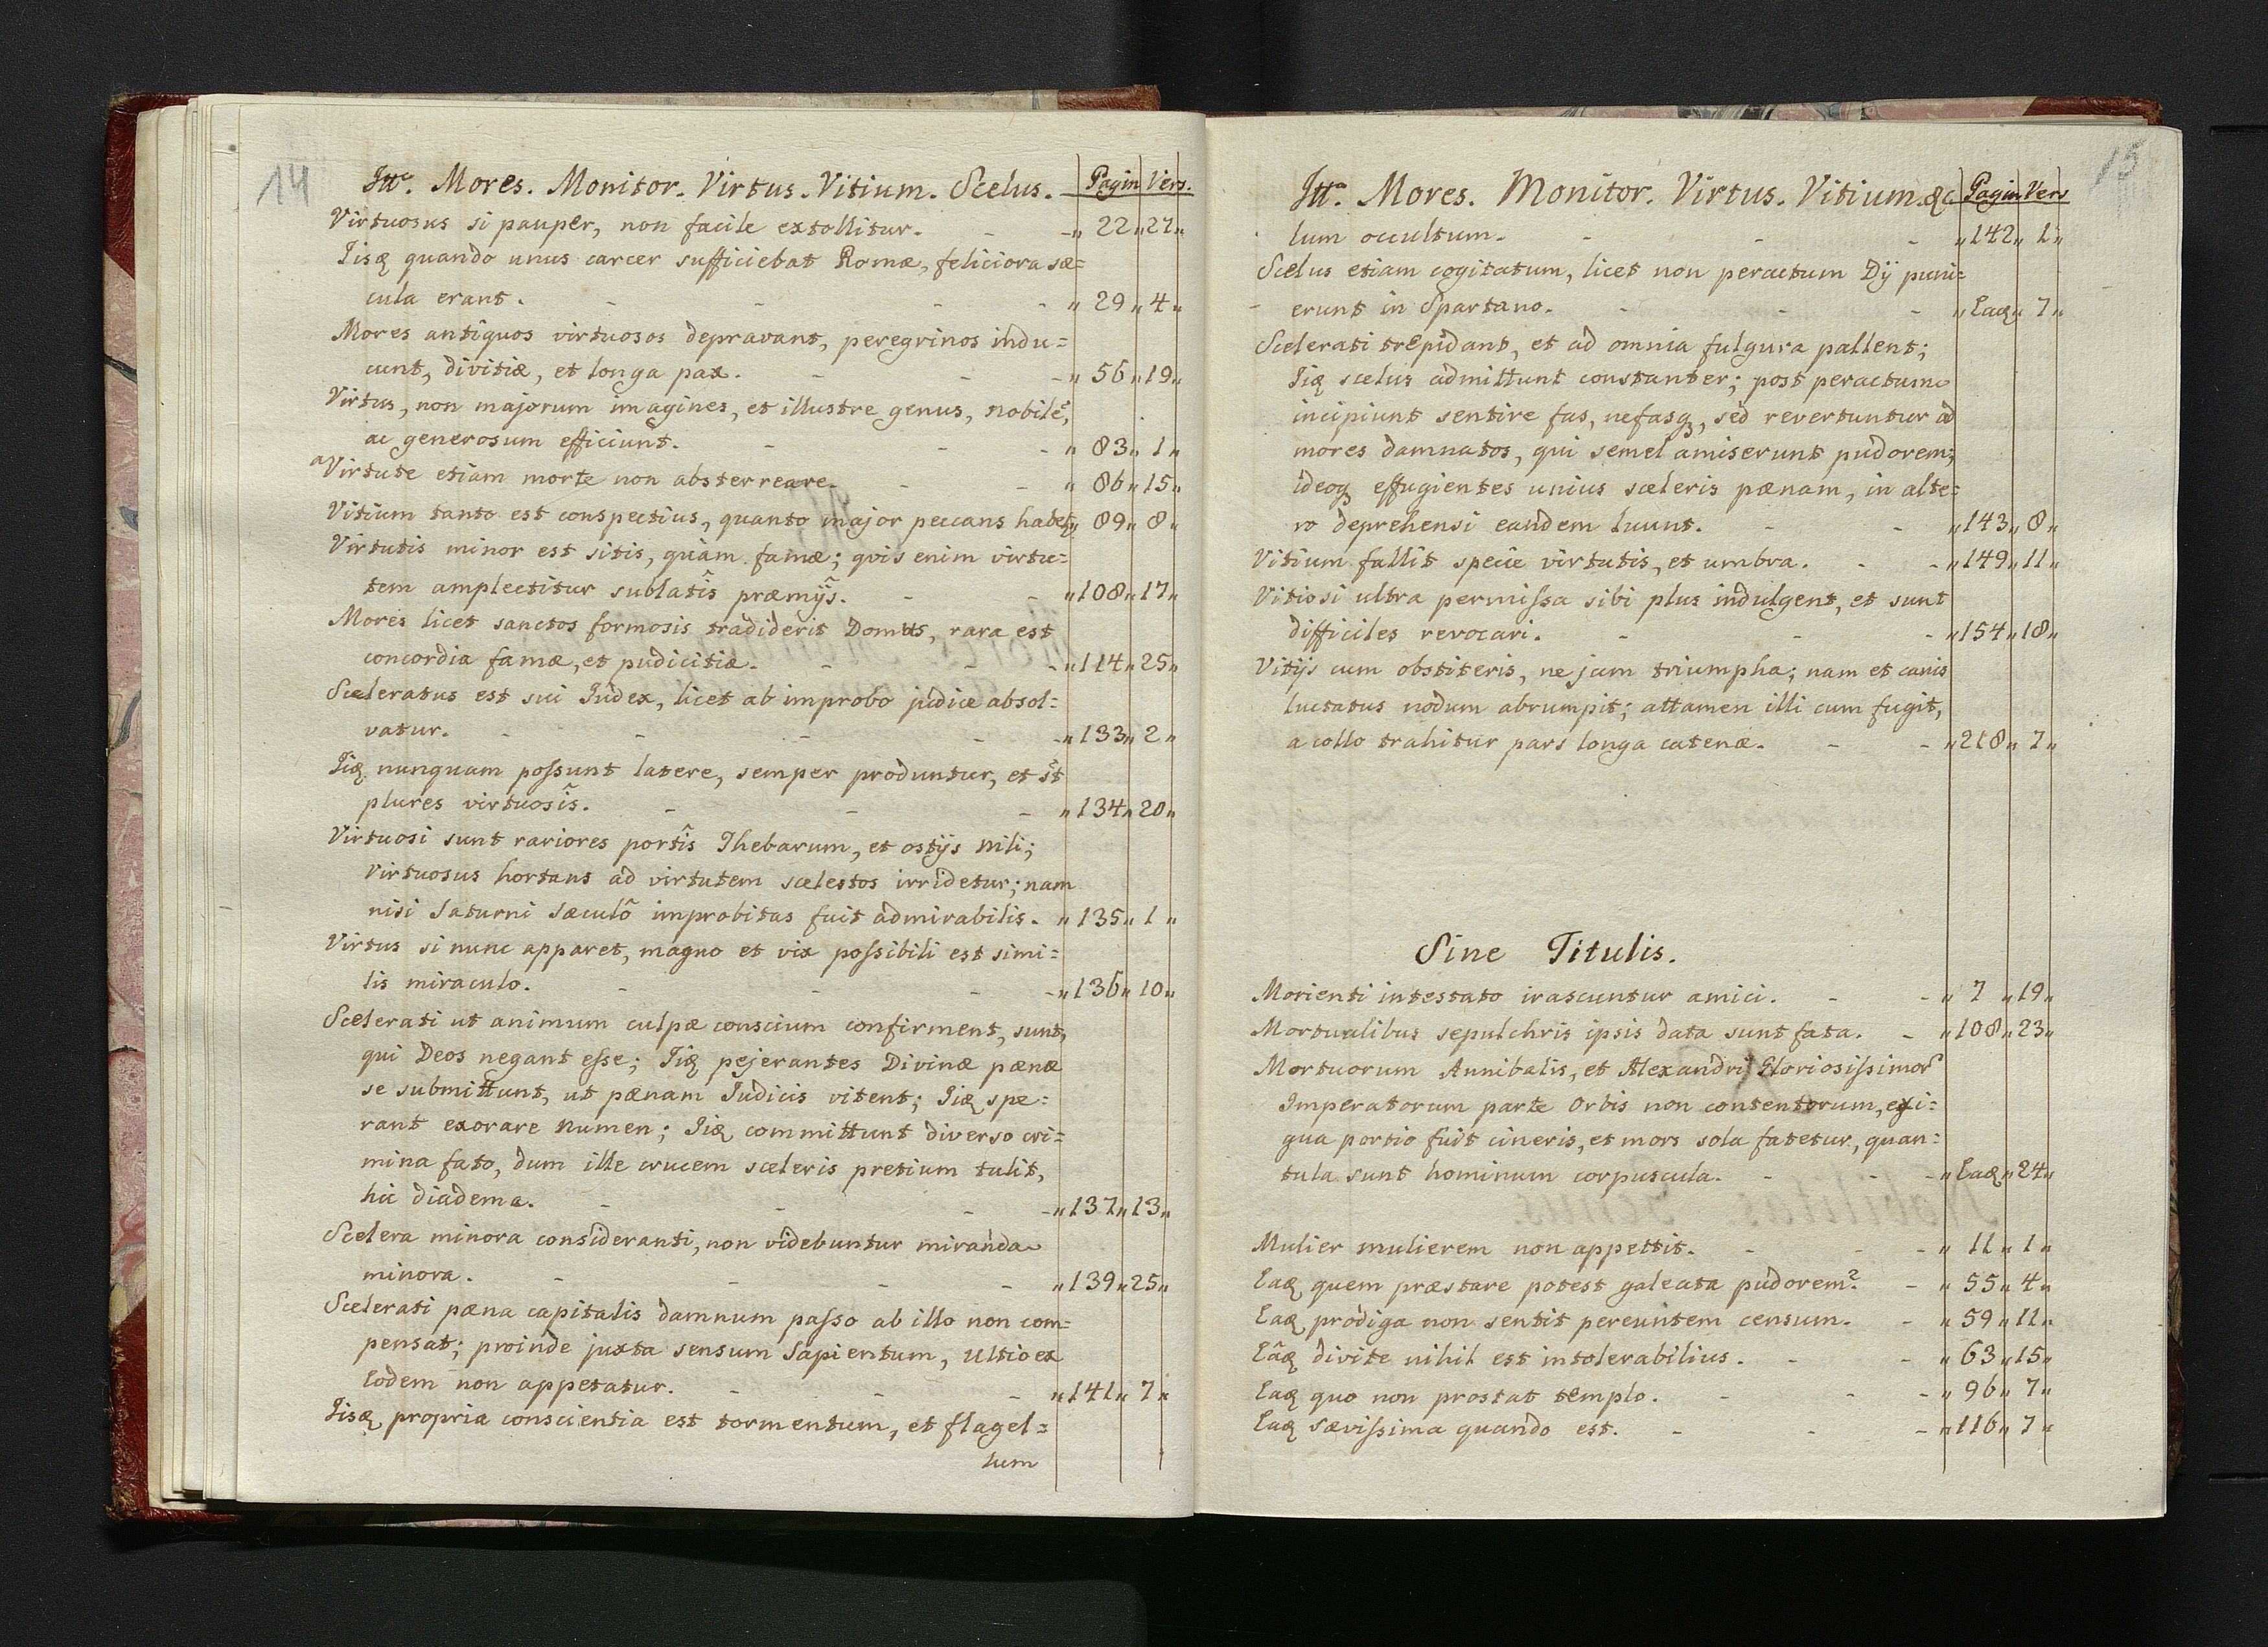 14
Itte. Mores. Monitor. Virtus. Vitium. Scelus. Pagin Vers.
Virtuosus si pauper, non facile extollitur. - - „ 22 „ 27 „
Iisq quando unus carcer sufficiebat Romæ, feliciora sæ=
cula erant. - - - - „ 29 „ 4 „
Mores antiquos virtuosos depravant, peregrinos indu=
cunt, divitiæ, et longa pax. - - - „ 56 „ 19 „
Virtus, non majorum imagines, et illustre genus, nobilẽ,
ac generosum efficiunt. - - - „ 83 „ 1 „
a Virtute etiam morte non absterreare. - - „ 86 „ 15 „
Vitium tanto est conspectius, quanto major peccans habet „ 89 „ 8 „
Virtutis minor est sitis, quàm famæ; qvis enim virtu=
tem amplectitur sublatîs præmijs. - - „ 108 „ 17 „
Mores licet sanctos formosis tradiderit Domus, rara est
concordia famæ, et pudicitiæ. - - - „ 114 „ 25 „
Sceleratus est sui Iudex, licet ab improbo judice absol=
vatur. - - - - - „ 133 „ 2 „
Iiq nunquam poſsunt latere, semper produntur, et st̃
plures virtuosîs. - - - „ 134 „ 20 „
Virtuosi sunt rariores portîs Thebarum, et ostijs Nili;
Virtuosus hortans ad virtutem scelestos irridetur; nam
nisi Saturni Sæculô improbitas fuit admirabilis. „ 135 „ 1 „
Virtus si nunc apparet, magno et vix poſsibili est simi=
lis miraculo. - - - - „ 136 „ 10 „
Scelerati ut animum culpæ conscium confirment, sunt,
qui Deos negant eſse; Iiq pejerantes Divinæ pænæ
se submittunt, ut pænam Iudicis vitent; Iiq spe=
rant exorare Numen; Iiq committunt diverso cri=
mina fato, dum ille crucem sceleris pretium tulit,
hic diadema. - - - - „ 137 „ 13 „
Scelera minora consideranti, non videbuntur miranda
minora. - - - - „ 139 „ 25 „
Scelerati pæna capitalis damnum paſso ab illo non com=
pensat; proinde juxta sensum Sapientum, Ultio ex
Eodem non appetatur. - - - „ 141 „ 7 „
Iisq propria conscientia est tormentum, et flagel=
lum
15
Itta. Mores. Monitor. Virtus. Vitium. &c Pagin Vers
lum occultum. - - - „ 142 „ 1 „
Scelus etiam cogitatum, licet non peractum Dij puni=
erunt in Spartano. - - - „ Eaq „ 7 „
Scelerati trepidant, et ad omnia fulgura pallent;
Iiq scelus admittunt constanter; post peractum
incipiunt sentire fas, nefasq, sed revertuntur ad
mores damnatos, qui semel amiserunt pudorem;
ideoq effugientes unius sceleris pænam, in alte=
ro deprehensi eandem luunt. - - „ 143 „ 8 „
Vitium fallit specie virtutis, et umbra. - - „ 149 „ 11 „
Vitiosi ultra permiſsa sibi plus indulgent, et sunt
difficiles revocari. - - - „ 154 „ 18 „
Vitijs cum obstiteris, ne jam triumpha; nam et canis
luctatus nodum abrumpit; attamen illi cum fugit,
a collo trahitur pars longa catenæ. - - „ 218 „ 7 „
Sine Titulis.
Morienti intestato irascuntur amici. - - „ 7 „ 19 „
Mortualibus sepulchris ipsis data sunt fata. - „ 108 „ 23 „
Mortuorum Annibalis, et Alexandri Gloriosiſsimor
Imperatorum parte Orbis non contentorum, exi=
gua portio fuit cineris, et mors sola fatetur, quan=
tula sunt hominum corpuscula. - - - „ Eaq „ 24 „
Mulier mulierem non appettit. - - - „ 11 „ 1 „
Eaq quem præstare potest galeata pudorem? - „ 55 „ 4 „
Eaq prodiga non sentit pereuntem censum. - „ 59 „ 11 „
Eâq divite nihil est intolerabilius. - - „ 63 „ 15 „
Eaq quo non prostat templo. - - - „ 96 „ 7 „
Eaq sæviſsima quando est. - - - „ 116 „ 7 „